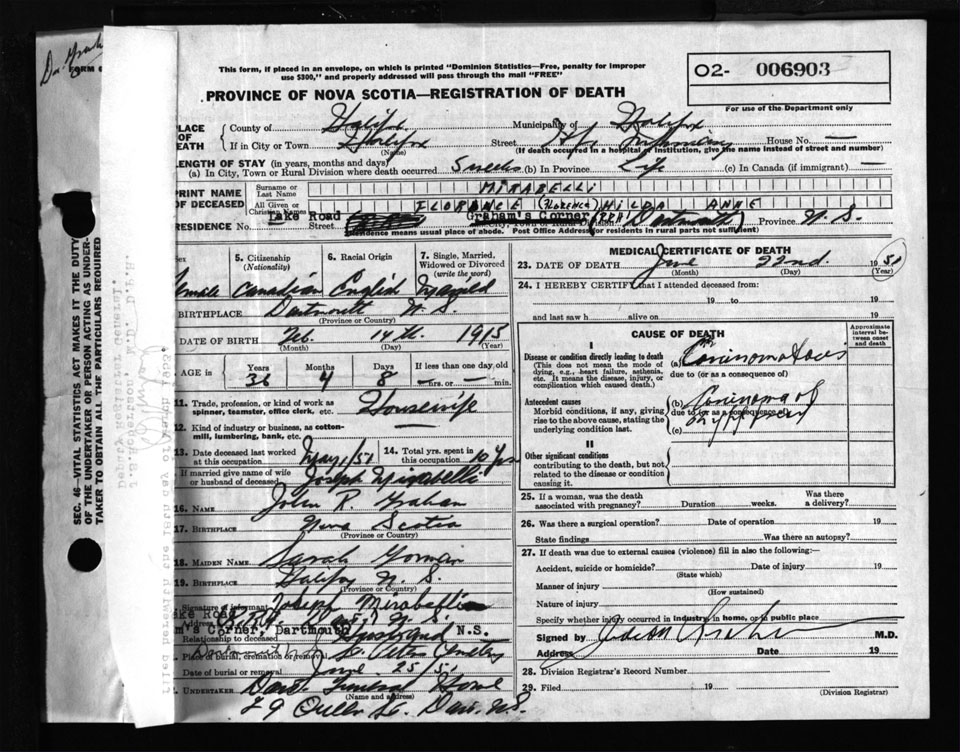 FORM
This form, if placed in an envelope, on which is printed "Dominion Statistics—Free, penalty for improper
use $300," and properly addressed will pass through the mail "FREE"
PROVINCE OF NOVA SCOTIA—REGISTRATION OF DEATH
O2- 006903
For use of the Department only
PLACE OF DEATH
County of Halifax Municipality of Halifax
If in City or Town Halifax Street Hfx Infirmary House No. —
(Name) (If death occurred in a hospital or institution, give the name instead of street and number)
LENGTH OF STAY (in years, months and days)
(a) In City, Town or Rural Division where death occurred 5 weeks (b) In Province Life (c) In Canada (if immigrant) —
PRINT NAME OF DECEASED
Surname or Last Name MIRABELLI
All Given or Christian Names FLORANCE (FLORENCE) HILDA ANNE
RESIDENCE No. Lake Road Street Graham's Corner Dartmouth Province N.S.
Residence means usual place of abode. Post Office Address for residents in rural parts not sufficient)
Sex 5. Citizenship (Nationality) 6. Racial Origin 7. Single, Married, Widowed or Divorced (write the word)
Female Canadian English Married
BIRTHPLACE Dartmouth N.S.
(Province or Country)
DATE OF BIRTH Feb. 14th. 1915
(Month) (Day) (Year)
AGE in Years Months Days If less than one day old
36 4 8 — hrs. or — min.
11. Trade, profession, or kind of work as spinner, teamster, office clerk, etc. Housewife
12. Kind of industry or business, as cotton-mill, lumbering, bank, etc. —
13. Date deceased last worked at this occupation May 1/51 14. Total yrs. spent in this occupation 10 Yrs
If married give name of wife or husband of deceased Joseph Mirabelli
16. Name John R. Graham
17. Birthplace Nova Scotia
(Province or Country)
18. Maiden Name Sarah
19. Birthplace Halifax N.S.
(Province or Country)
Signature of informant Joseph Mirabelli
Lake Road
Address N.S.
Graham's Corner, Dartmouth N.S.
Relationship to deceased Husband
Place of burial, cremation or removal Dartmouth St. Peters Cemetery
Date of burial or removal June 25/51
UNDERTAKER Dart. Funeral Home
(Name and address)
79 Queen St. Dart. N.S.
MEDICAL CERTIFICATE OF DEATH
23. DATE OF DEATH June 22nd. 1951
(Month) (Day) (Year)
24. I HEREBY CERTIFY that I attended deceased from:
19 to 19
and last saw h alive on 19
CAUSE OF DEATH
Approximate interval between onset and death
I
Disease or condition directly leading to death
(This does not mean the mode of dying, e.g., heart failure, asthenia, etc. It means the disease, injury, or complication which caused death.)
(a) Carcinomatosis
due to (or as a consequence of)
Antecedent causes
Morbid conditions, if any, giving rise to the above cause, stating the underlying condition last.
(b) Carcinoma of
due to (or as a consequence of)
(c)
II
Other significant conditions
contributing to the death, but not related to the disease or condition causing it.
25. If a woman, was the death associated with pregnancy? Duration weeks. Was there a delivery?
26. Was there a surgical operation? Date of operation 19
State findings Was there an autopsy?
27. If death was due to external causes (violence) fill in also the following:—
Accident, suicide or homicide? Date of injury 19
(State which)
Manner of injury
(How sustained)
Nature of injury
Specify whether injury occurred in industry, in home, or in public place
Signed by M.D.
Address Date 19
28. Division Registrar's Record Number
29. Filed 19
(Division Registrar)
SEC. 46—VITAL STATISTICS ACT MAKES IT THE DUTY
OF THE UNDERTAKER OR PERSON ACTING AS UNDER-
TAKER TO OBTAIN ALL THE PARTICULARS REQUIRED
Deputy Registrar General.
Filed herewith the 18th day of March 1955.